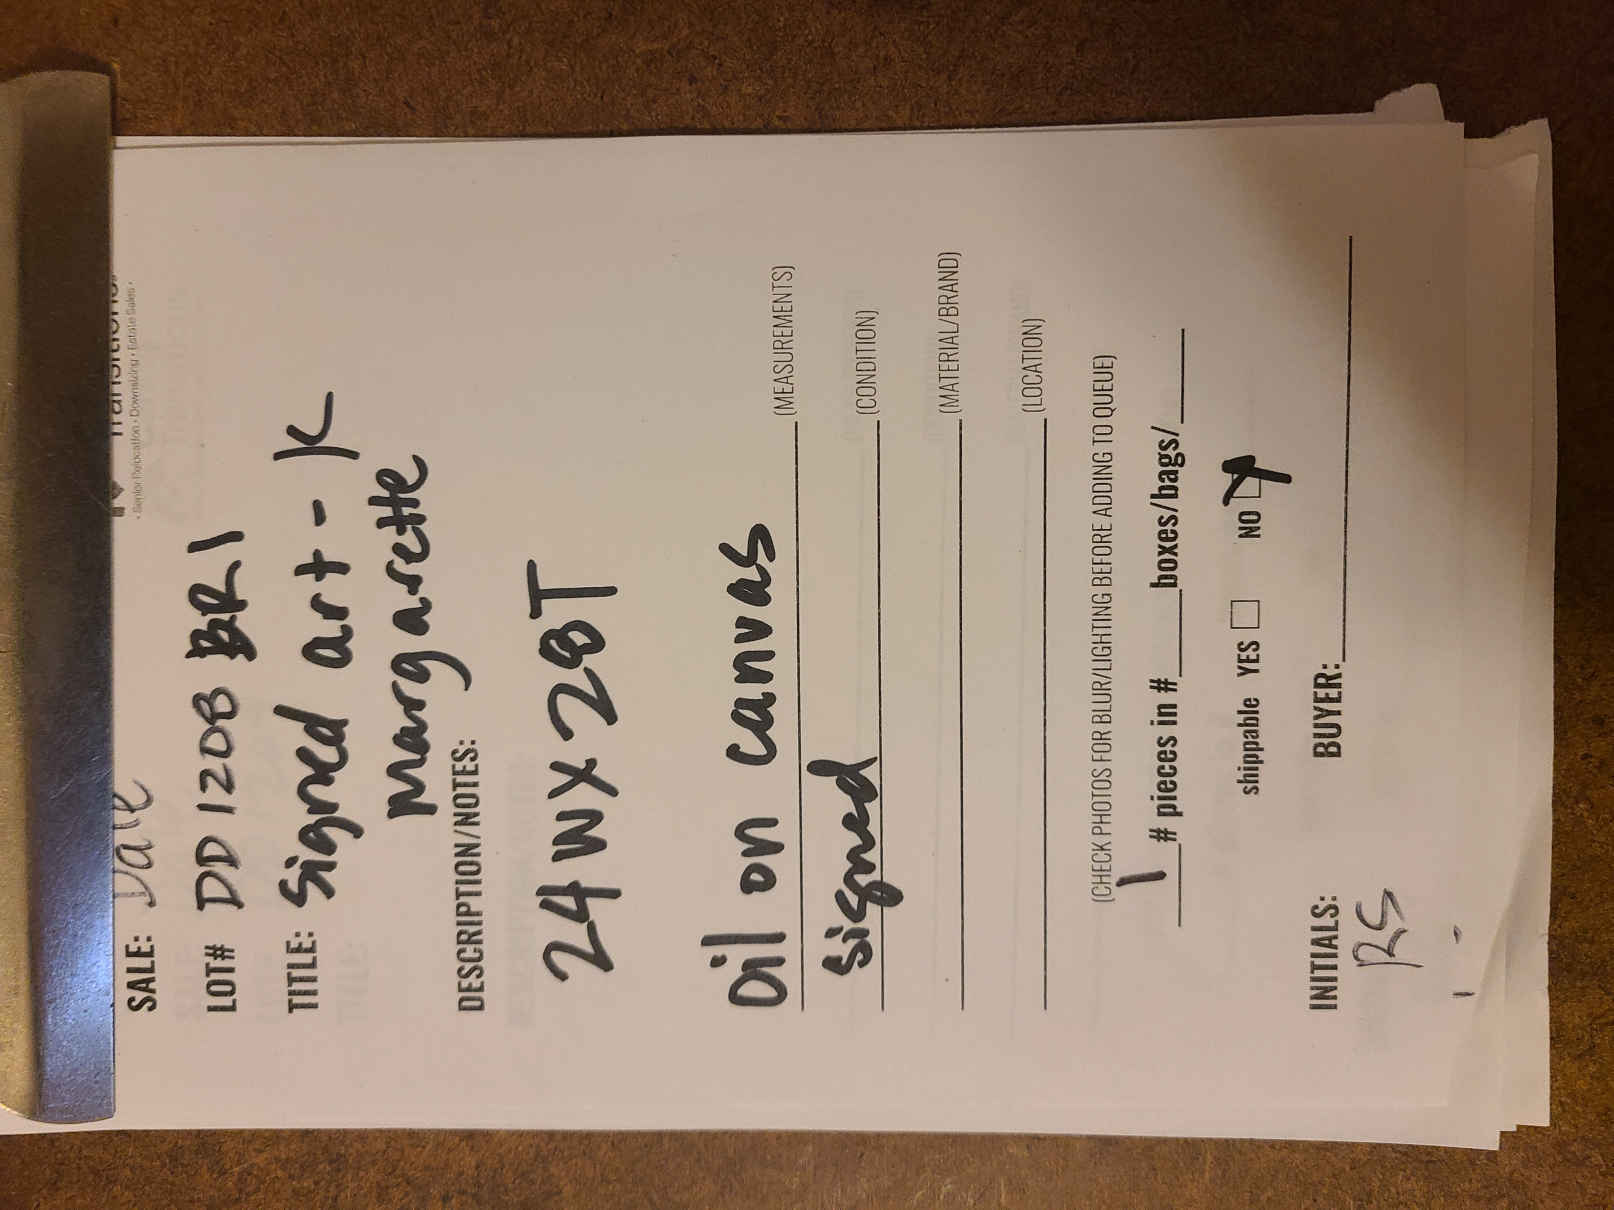 • Senior Relocation • Downsizing • Estate Sales •
SALE: Dale
LOT# DD120B BR1
TITLE: Signed art - K
Margarette
DESCRIPTION/NOTES:
24W X 28T
Oil on canvas (MEASUREMENTS)
Signed (CONDITION)
(MATERIAL/BRAND)
(LOCATION)
(CHECK PHOTOS FOR BLUR/LIGHTING BEFORE ADDING TO QUEUE)
1 # pieces in # boxes/bags/
shippable YES NO X
INITIALS: BUYER:
RS